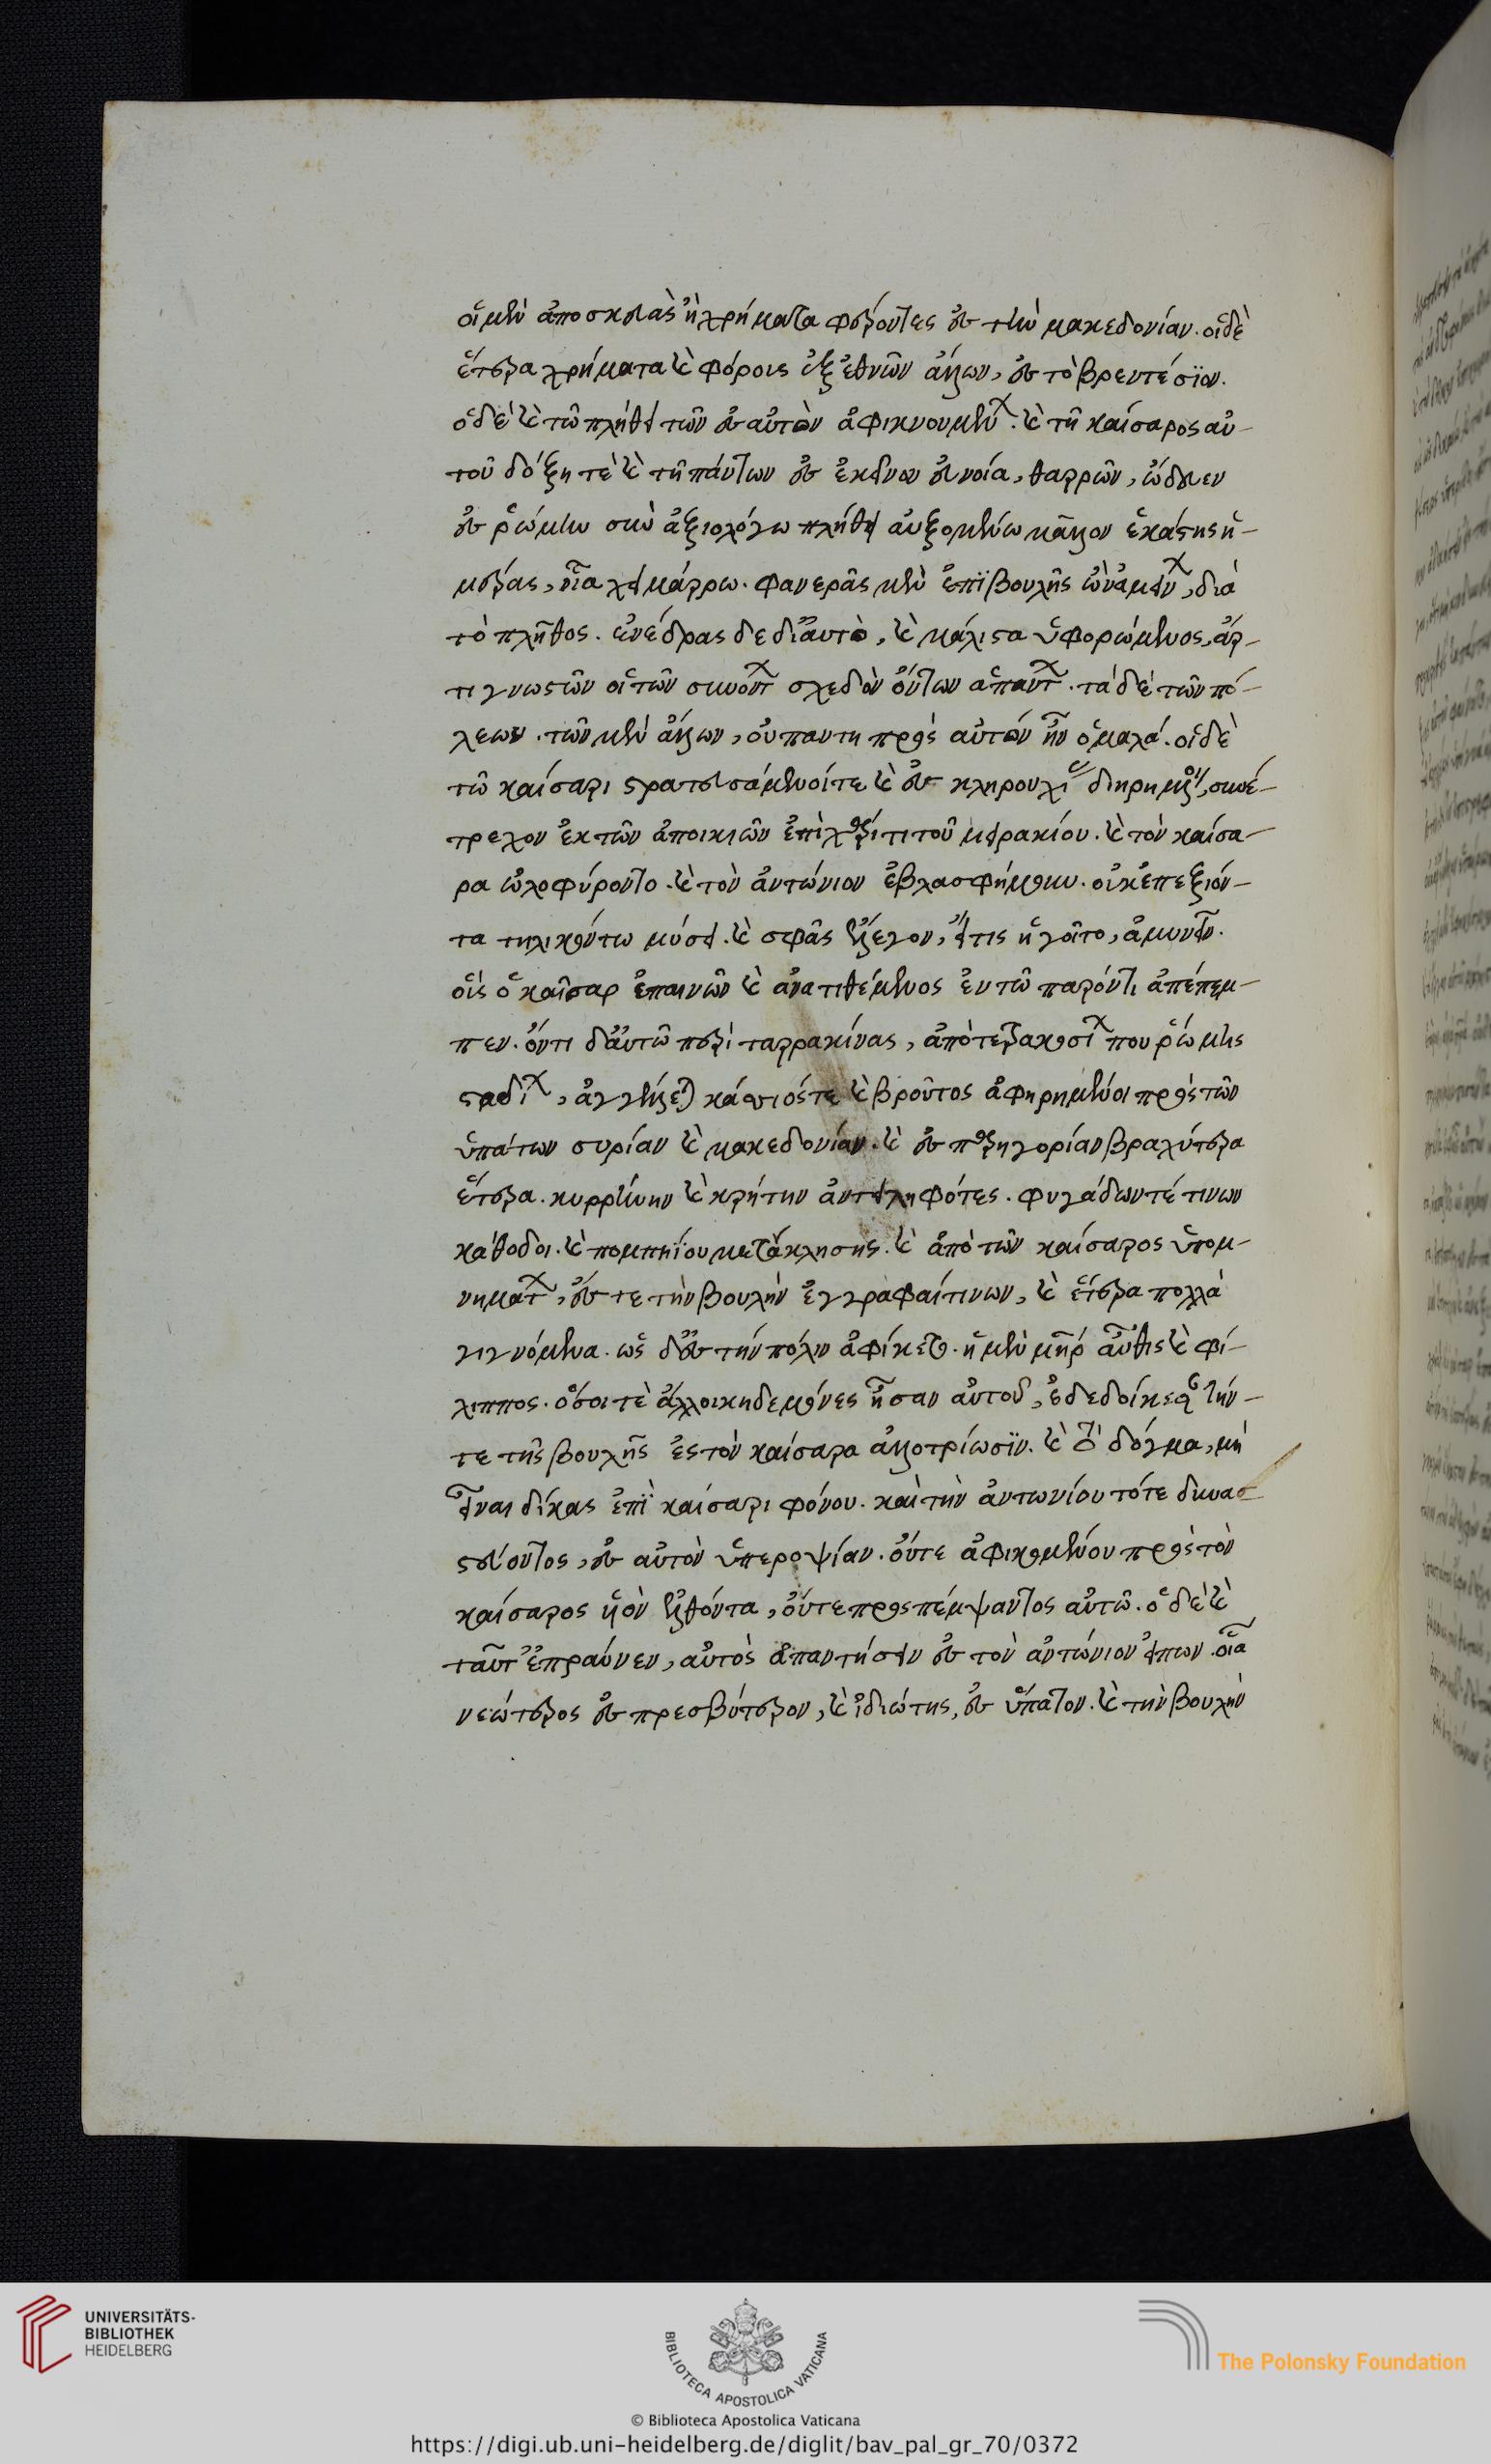 οἱ μὲν ἀποσκευὰς ἢ χρήματα φέροντες ἐς τὴν μακεδονίαν. οἱ δὲ
ἕτερα χρήματα καὶ φόρους ἐξ ἐθνῶν ἄλλων, ἐς τὸ βρεντέσϊον.
ὁ δὲ καὶ τῶ πλήθει τῶν ἐς αὐτὸν ἀφικνουμένων. καὶ τῆ καίσαρος αὐ-
τοῦ δόξη τὲ καὶ τῆ πάντων ἐς ἐκεῖνον εὐνοία, θαρρῶν, ὥδευεν
ἐς ῥώμην σὺν ἀξιολόγω πλήθει αὐξομένω μᾶλλον ἑκάστης ἡ-
μέρας, οἷα χειμάρρω. φανερᾶς μὲν ἐπϊβουλῆς ὢν ἀμείνων, διὰ
τὸ πλῆθος. ἐνέδρας δὲ δι' αὐτὸ, καὶ μάλιστα ὑφορώμενος, ἀρ-
τιγνώστων οἱ τῶν συνόντων σχεδὸν ὄντων ἁπάντων. τὰ δὲ τῶν πό-
λεων. τῶν μὲν ἄλλων, οὐ παντη πρὸς αὐτὸν ἦν ὁμαλά. οἱ δὲ
τῶ καίσαρι στρατευσάμενοί τε καὶ ἐς κληρουχίας διηρημένοι, συνέ-
τρεχον ἐκ τῶν ἀποικιῶν ἐπὶ χάριτι τοῦ μειρακίου. καὶ τὸν καίσα-
ρα ὠλοφύροντο. καὶ τὸν ἀντώνιον ἐβλασφήμουν. οὐκ ἐπεξιόν-
τα τηλικούτω μύσει. καὶ σφᾶς ἔλεγον, εἴ τις ἡγοῖτο, ἀμυνεῖν.
οὓς ὁ καῖσαρ ἐπαινῶν καὶ ἀνατιθέμενος ἐν τῶ παρόντι ἀπέπεμ-
πεν. ὄντι δ' αὐτῶ περὶ ταρρακίνας, ἀπὸ τετρακοσίων που ῥώμης
σταδίων, ἀγγέλλεται κάσσιός τε καὶ βροῦτος ἀφηρημένοι πρὸς τῶν
ὑπάτων συρίαν καὶ μακεδονίαν. καὶ ἐς παρηγορίαν βραχύτερα
ἕτερα. κυρρήνην καὶ κρήτην ἀντειληφότες. φυγάδων τέ τινων
κάθοδοι. καὶ πομπηίου μετάκλησις. καὶ ἀπὸ τῶν καίσαρος ὑπομ-
νημάτων, ἔς τε τὴν βουλὴν ἐγγραφαί τινων, καὶ ἕτερα πολλὰ
γιγνόμενα. ὡς δ' ἐς τὴν πόλιν ἀφίκετο. ἡ μὲν μήτηρ αὖθις καὶ φί-
λιππος. ὅσοι τὲ ἄλλοι κηδεμόνες ἦσαν αὐτοῦ, ἐδεδοίκεσαν τήν-
τε τῆς βουλῆς ἐς τὸν καίσαρα ἀλλοτρίωσϊν. καὶ τὸ δόγμα, μὴ
εἶναι δίκας ἐπῒ καίσαρι φόνου. καὶ τὴν ἀντωνίου τότε δυνασ
στεύοντος, ἐς αὐτὸν ὑπεροψίαν. οὔτε ἀφικομένου πρὸς τὸν
καίσαρος υἱὸν ἐλθόντα, οὔτε προσπέμψαντος αὐτῶ. ὁ δὲ καὶ
ταῦτ' ἐπράυνεν, αὐτὸς ἀπαντήσειν ἐς τὸν ἀντώνιον εἰπων. οἷα
νεώτερος ἐς πρεσβύτερον, καὶ ἰδιώτης, ἐς ὕπατον. καὶ τὴν βουλὴν
UNIVERSITÄTS-
BIBLIOTHEK
HEIDELBERG
BIBLIOTECA APOSTOLICA VATICANA
The Polonsky Foundation
© Biblioteca Apostolica Vaticana
https://digi.ub.uni-heidelberg.de/diglit/bav_pal_gr_70/0372